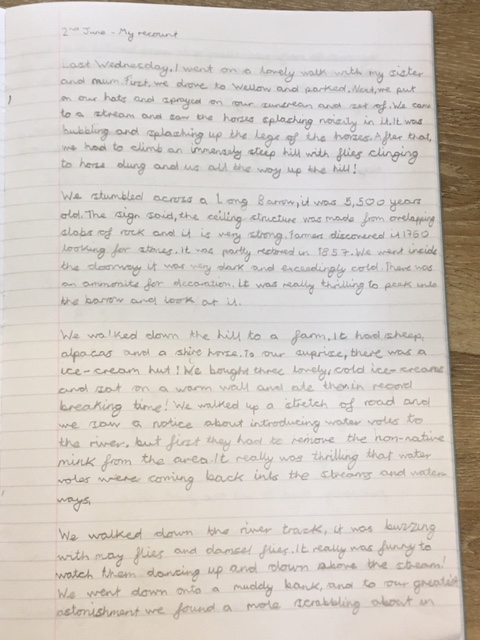 2nd June - My recount
Last Wednesday, I went on a lovely walk with my sister
and mum. First, we drove to Wellow and parked. Next, we put
on our hats and sprayed on our suncream and set of. We came
to a stream and saw the horses splashing noisily in it. It was
bubbling and splashing up the legs of the horses. After that,
we had to climb an immensely steep hill with flies clinging
to horse dung and us all the way up the hill!
We stumbled across a Long Barrow, it was 5,500 years
old. The sign said, the ceiling structure was made from overlapping
slabs of rock and it is very strong. Farmers discovered it 1760
looking for stones. It was partly restored in 1857. We went inside
the doorway it was very dark and exceedingly cold. There was
an ammonite for decoration. It was really thrilling to peek into
the barrow and look at it.
We walked down the hill to a farm, it had sheep,
alpacas and a shire horse. To our suprise, there was a
ice-cream hut! We bought three lovely, cold ice-creams
and sat on a warm wall and ate them in record
breaking time! We walked up a stretch of road and
we saw a notice about introducing water voles to
the river, but first they had to remove the non-native
mink from the area. It really was thrilling that water
voles were coming back into the streams and water
ways.
We walked down the river track, it was buzzing
with may flies and damsel flies. It really was funny to
watch them dancing up and down above the stream!
We went down onto a muddy bank, and to our greatest
astonishment we found a mole scrabbling about in